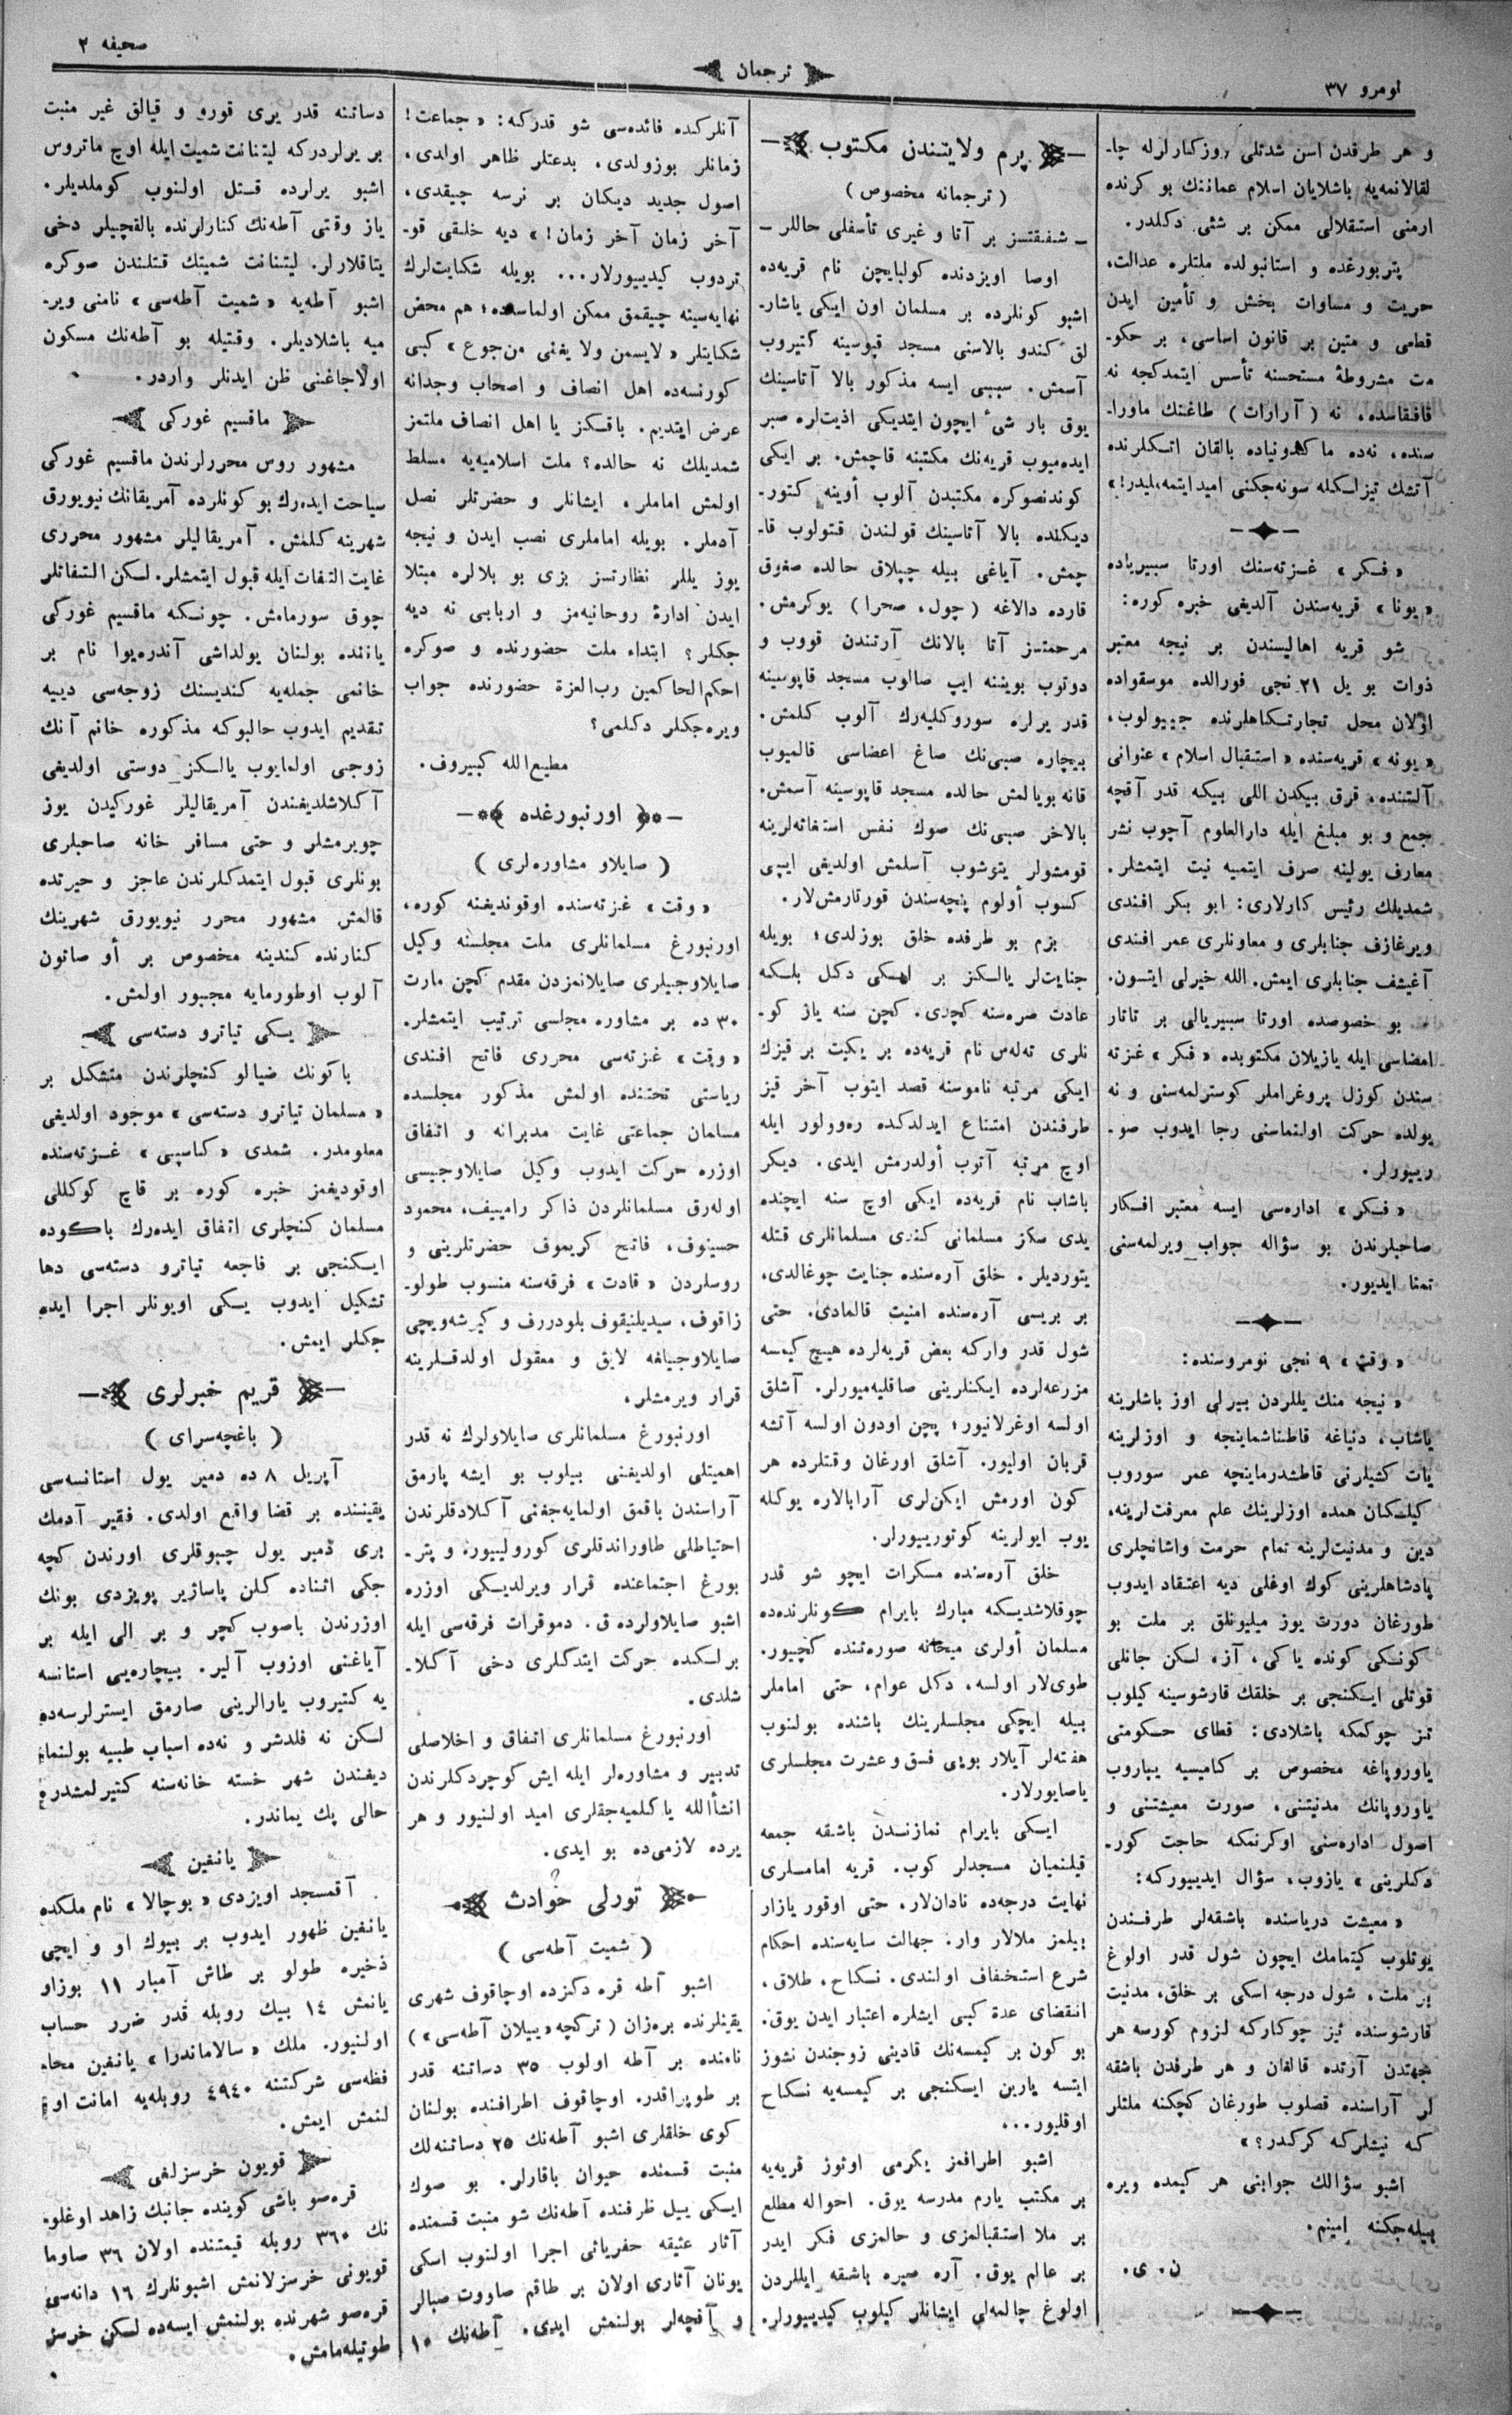 نومرو ٣٧
ترجمان
صحیفه ٢
و هر طرفدن اسن شدتلی روزكارلرله چا-
لقالانمه‌یه باشلایان اسلام عماننك بو كرنده
ارمنی استقلالی ممكن بر شئی دكلدر.
پتربورغده و استانبولده ملتلره عدالت،
حریت و مساوات بخش و تأمین ایدن
قطعی و متین بر قانون اساسی، بر حكو-
مت مشروطهٔ مستحسنه تأسس ایتمدكجه نه
قافقاسده، نه ( آرارات ) طاغنك ماورا-
سنده، نه‌ده ماكدونیاده بالقان اتكلرنده
آتشك تیزلكله سونه‌جكنی امید ایتمه‌لیدر!»
« فكر » غزته‌سنك اورتا سیبریاده
« یونا » قریه‌سندن آلدیغی خبره كوره:
شو قریه اهالیسندن بر نیجه معتبر
ذوات بو یل ٢١ نجی فورالده موسقواده
اولان محل تجارتكاهلرنده جییولوب،
« یونه » قریه‌سنده « استقبال اسلام » عنوانی
آلتنده، قرق بیكدن اللی بیكه قدر آقچه
جمع و بو مبلغ ایله دارالعلوم آچوب نشر
معارف یولینه صرف ایتمیه نیت ایتمشلر.
شمدیلك رئیس كارلاری: ابو بكر افندی
ویرغازف جنابلری و معاونلری عمر افندی
آغیشف جنابلری ایمش. الله خیرلی ایتسون.
بو خصوصده اورتا سیبریالی بر تاتار
امضاسی ایله یازیلان مكتوبده « فكر » غزته
سندن كوزل پروغراملر كوسترلمه‌سنی و نه
یولده حركت اولنماسنی رجا ایدوب صو-
رییورلر.
« فكر » اداره‌سی ایسه معتبر افكار
صاحبلرندن بو سؤاله جواب ویرلمه‌سنی
تمنا ایدیور.
« وقت » ٩ نجی نومروسنده:
« نیجه منك یللردن بیرلی اوز باشلرینه
یاشاب، دنیاغه قاطناشماینجه و اوزلرینه
یات كشیلرنی قاطشدرماینچه عمر سوروب
كیلكان همده اوزلرینك علم معرفت‌لرینه،
دین و مدنیت‌لرینه تمام حرمت واشانچلری
پادشاهلرینی كوك اوغلی دیه اعتقاد ایدوب
طورغان دورت یوز میلیونلق بر ملت بو
كونكی كونده یاكی، آز، لكن جانلی
قوتلی ایكنجی بر خلقك قارشوسینه كیلوب
تز چوكمكه باشلادی: قطای حكومتی
یاوروپاغه مخصوص بر كامیسیه یباروب
یاوروپانك مدنیتنی، صورت معیشتنی و
اصول اداره‌سنی اوكرنمكه حاجت كور-
دكلرینی » یازوب، سؤال ایدییوركه:
« معیشت دریاسنده باشقه‌لر طرفندن
یوتلوب كیتمامك ایچون شول قدر اولوغ
بر ملت، شول درجه اسكی بر خلق، مدنیت
قارشوسنده تیز چوكاركه لزوم كورسه هر
جهتدن آرتده قالفان و هر طرفدن باشقه
لر آراسنده قصلوب طورغان كچكنه ملتلر
كه نیشلركه كركدر؟ »
اشبو سؤالك جوابنی هر كیمده ویره
بیله‌جكنه امینم.
ن. ی.
پرم ولایتندن مكتوب
( ترجمانه مخصوص )
ـ شفقتسز بر آتا و غیری تأسفلی حاللر ـ
اوصا اویزدنده كولبایچن نام قریه‌ده
اشبو كونلرده بر مسلمان اون ایكی یاشار-
لق كندو بالاسنی مسجد قپوسینه كتیروب
آسمش. سببی ایسه مذكور بالا آتاسینك
یوق بار شئ ایچون ایتدیكی اذیت‌لره صبر
ایده‌میوب قریه‌نك مكتبنه قاچمش. بر ایكی
كوندنصوكره مكتبدن آلوب أوینه كتور-
دیكنده بالا آتاسینك قولندن قتولوب قا-
چمش. آیاغی بیله چپلاق حالده صفوق
قارده دالاغه ( چول، صحرا ) یوكرمش.
مرحمتسز آتا بالانك آرتندن قووب و
دوتوب بویننه ایپ صالوب مسجد قاپوسینه
قدر یرلره سوروكلیه‌رك آلوب كلمش.
بیچاره صبی‌نك صاغ اعضاسی قالمیوب
قانه بویالمش حالده مسجد قاپوسینه آسمش.
بالاخر صبی‌نك صوك نفس استغاثه‌لرینه
قومشولر یتوشوب آسلمش اولدیغی ایپی
كسوب أولوم پنچه‌سندن قورتارمش‌لار.
بزم بو طرفده خلق بوزلدی؛ بویله
جنایت‌لر یالكز بر ایكی دكل بلكه
عادت صره‌سنه كچدی. كچن سنه یاز كو-
نلری ته‌له‌س نام قریه‌ده بر یكیت بر قیزك
ایكی مرتبه ناموسنه قصد ایتوب آخر قیز
طرفندن امتناع ایدلدكده ره‌وولور ایله
اوچ مرتبه آتوب أولدرمش ایدی. دیكر
باشاب نام قریه‌ده ایكی اوچ سنه ایچنده
یدی سكز مسلمانی كندی مسلمانلری قتله
یتوردیلر. خلق آره‌سنده جنایت چوغالدی،
بر بریسی آره‌سنده امنیت قالمادی. حتی
شول قدر واركه بعض قریه‌لرده هیچ كیمسه
مزرعه‌لرده ایكنلرینی صاقلیه‌میورلر. آشلق
اولسه اوغرلانیور؛ پچن اودون اولسه آتشه
قربان اولیور. آشلق اورغان وقتلرده هر
كون اورمش ایكن‌لری آرابالاره یوكله
یوب ایولرینه كوتورییورلر.
خلق آره‌سنده مسكرات ایچو شو قدر
چوقلاشدیكه مبارك بایرام كونلرنده‌ده
مسلمان أولری میخانه صوره‌تنده كچیور.
طوی‌لار اولسه، دكل عوام، حتی اماملر
بیله ایچكی مجلسلرینك باشنده بولنوب
هفته‌لر آیلار بویی فسق و عشرت مجلسلری
یاصایورلار.
ایكی بایرام نمازندن باشقه جمعه
قیلنمیان مسجدلر كوب. قریه اماملری
نهایت درجه‌ده نادان‌لار، حتی اوقور یازار
بیلمز ملالار وار. جهالت سایه‌سنده احكام
شرع استخفاف اولندی. نكاح، طلاق،
انقضای عدة كبی ایشلره اعتبار ایدن یوق.
بو كون بر كیمسه‌نك قادینی زوجندن نشوز
ایتسه یارین ایكنجی بر كیمسه‌یه نكاح
اوقلیور...
اشبو اطرافمز یكرمی اوتوز قریه‌یه
بر مكتب یارم مدرسه یوق. احواله مطلع
بر ملا استقبالمزی و حالمزی فكر ایدر
بر عالم یوق. آره صیره باشقه ایللردن
اولوغ چالمه‌لی ایشانلر كیلوب كیدییورلر.
آنلركده فائده‌سی شو قدركه: « جماعت!
زمانلر بوزولدی، بدعتلر ظاهر اولدی،
اصول جدید دیكان بر نرسه چیقدی،
آخر زمان آخر زمان! » دیه خلقی قو-
تردوب كیدییورلار... بویله شكایت‌لرك
نهایه‌سینه چیقمق ممكن اولماسه‌ده؛ هم محض
شكایتلر « لایسمن ولا یغنی من‌جوع » كبی
كورنسه‌ده اهل انصاف و اصحاب وجدانه
عرض ایتدیم. باقكز یا اهل انصاف ملتمز
شمدیلك نه حالده؟ ملت اسلامیه‌یه مسلط
اولمش اماملر، ایشانلر و حضرتلر نصل
آدملر. بویله اماملری نصب ایدن و نیجه
یوز یللر نظارتسز بزی بو بلالره مبتلا
ایدن ادارهٔ روحانیه‌مز و اربابی نه دیه
جكلر؟ ابتداء ملت حضورنده و صوكره
احكم‌الحاكمین رب‌العزة حضورنده جواب
ویره‌جكلر دكلمی؟
مطیع‌الله كبیروف.
اورنبورغده
( صایلاو مشاوره‌لری )
« وقت » غزته‌سنده اوقوندیغنه كوره،
اورنبورغ مسلمانلری ملت مجلسنه وكیل
صایلاوجیلری صایلانمزدن مقدم كچن مارت
٣٠ ده بر مشاوره مجلسی ترتیب ایتمشلر.
« وقت » غزته‌سی محرری فاتح افندی
ریاستی تحتنده اولمش مذكور مجلسده
مسلمان جماعتی غایت مدبرانه و اتفاق
اوزره حركت ایدوب وكیل صایلاوجیسی
اوله‌رق مسلمانلردن ذاكر رامییف، محمود
حسینوف، فاتح كریموف حضرتلرینی و
روسلردن « قادت » فرقه‌سنه منسوب طولو-
زاقوف، سیدیلنیقوف بلودررف و كیرشه‌ویچی
صایلاوجیلغه لایق و معقول اولدقلرینه
قرار ویرمشلر.
اورنبورغ مسلمانلری صایلاولرك نه قدر
اهمیتلی اولدیغنی بیلوب بو ایشه پارمق
آراسندن باقمق اولمایه‌جغنی آكلادقلرندن
احتیاطلی طاوراندقلری كورولییور، و پتر-
بورغ اجتماعنده قرار ویرلدیكی اوزره
اشبو صایلاولرده ق. دموقرات فرقه‌سی ایله
برلكده حركت ایتدگلری دخی آكلا-
شلدی.
اورنبورغ مسلمانلری اتفاق و اخلاصلی
تدبیر و مشاوره‌لر ایله ایش كوچردكلرندن
انشأالله یاكلمیه‌جقلری امید اولنیور و هر
یرده لازمی‌ده بو ایدی.
تورلی حوادث
( شمیت آطه‌سی )
اشبو آطه قره دكزده اوچاقوف شهری
یقینلرنده بره‌زان ( تركچه « ییلان آطه‌سی » )
نامنده بر آطه اولوب ٣٥ دساتنه قدر
بر طوپراقدر. اوچاقوف اطرافنده بولنان
كوی خلقلری اشبو آطه‌نك ٢٥ دساتنه‌لك
منبت قسمنده حیوان باقارلر. بو صوك
ایكی ییل ظرفنده آطه‌نك شو منبت قسمنده
آثار عتیقه حفریاتی اجرا اولنوب اسكی
یونان آثاری اولان بر طاقم صاووت صبالر
و آقچه‌لر بولنمش ایدی. آطه‌نك ١٠
دساتنه قدر یری قورو و قیالق غیر منبت
بر یرلردركه لیتنانت شمیت ایله اوچ ماتروس
اشبو یرلرده قتل اولنوب كوملدیلر.
یاز وقتی آطه‌نك كنارلرنده بالقچیلر دخی
یتاقلارلر. لیتنانت شمیتك قتلندن صوكره
اشبو آطه‌یه « شمیت آطه‌سی » نامنی ویر-
میه باشلادیلر. وقتیله بو آطه‌نك مسكون
اولاجاغنی ظن ایدنلر واردر.
ماقسیم غوركی
مشهور روس محررلرندن ماقسیم غوركی
سیاحت ایده‌رك بو كونلرده آمریقانك نیویورق
شهرینه كلمش. آمریقالیلر مشهور محرری
غایت التفات ایله قبول ایتمشلر. لكن التفاتلر
چوق سورمامش. چونكه ماقسیم غوركی
یاننده بولنان یولداشی آندره‌یوا نام بر
خانمی جمله‌یه كندیسنك زوجه‌سی دییه
تقدیم ایدوب حالبوكه مذكوره خانم آنك
زوجی اولمایوب یالكز دوستی اولدیغی
آكلاشلدیغندن آمریقالیلر غوركیدن یوز
چویرمشلر و حتی مسافر خانه صاحبلری
بونلری قبول ایتمدكلرندن عاجز و حیرتده
قالمش مشهور محرر نیویورق شهرینك
كنارنده كندینه مخصوص بر أو صاتون
آلوب اوطورمایه مجبور اولمش.
یكی تیاترو دسته‌سی
باكونك ضیالو كنچلرندن متشكل بر
« مسلمان تیاترو دسته‌سی » موجود اولدیغی
معلومدر. شمدی « كاسپی » غزته‌سنده
اوقودیغمز خبره كوره بر قاچ كوكللی
مسلمان كنچلری اتفاق ایده‌رك باكوده
ایكنجی بر فاجعه تیاترو دسته‌سی دها
تشكیل ایدوب یكی اویونلر اجرا ایده
جكلر ایمش.
قریم خبرلری
( باغچه‌سرای )
آپریل ٨ ده دمیر یول استانسه‌سی
یقیننده بر قضا واقع اولدی. فقیر آدمك
بری دمیر یول چبوقلری اورندن كچه
جكی اثناده كلن پاساژیر پویزدی بونك
اوزرندن باصوب كچر و بر الی ایله بر
آیاغنی اوزوب آلیر. بیچاره‌یی استانسه
یه كتیروب یارالرینی صارمق ایسترلرسه‌ده
لكن نه فلدشر و نه‌ده اسباب طبیه بولنما-
دیغندن شهر خسته خانه‌سنه كتیرلمشدره
حالی پك یماندر.
یانغین
آقمسجد اویزدی « بوچالا » نام ملكده
یانغین ظهور ایدوب بر بیوك او و ایچی
ذخیره طولو بر طاش آمبار ١١ بوزاو
یانمش ١٤ بیك روبله قدر ضرر حساب
اولنیور. ملك « سالاماندرا » یانغین محا-
فظه‌سی شركتنه ٤٩٤٠ روبله‌یه امانت او-
لنمش ایمش.
قویون خرسزلغی
قره‌صو باشی كوینده جانبك زاهد اوغلو-
نك ٣٦٠ روبله قیمتنده اولان ٣٦ صاوما
قویونی خرسزلانمش اشبونلرك ١٦ دانه‌سی
قره‌صو شهرنده بولنمش ایسه‌ده لكن خرسز
طوتیله‌مامش.